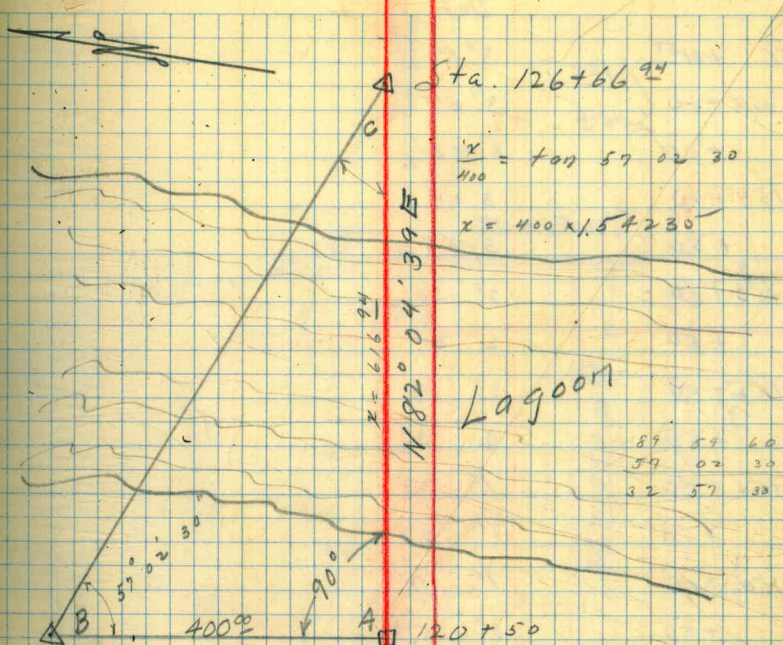 Sta. 126+66 94
C
x/400 = tan 57 02 30
x = 400 x 1.54235
x = 616 94
N 82° 04' 39 E
Lagoon
89 59 60
57 02 30
32 57 30
57° 02' 30"
90°
B
400 00
A
120 + 50